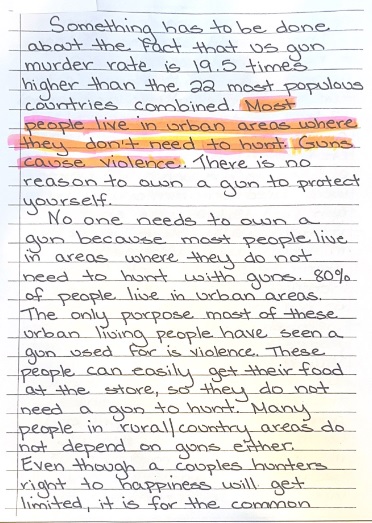 Something has to be done
about the fact that us gun
murder rate is 19.5 times
higher than the 22 most populous
countries combined. Most
people live in urban areas where
they don't need to hunt. Guns
cause violence. There is no
reason to own a gun to protect
yourself.
No one needs to own a
gun because most people live
in areas where they do not
need to hunt with guns. 80%
of people live in urban areas.
The only purpose most of these
urban living people have seen a
gun used for is violence. These
people can easily get their food
at the store, so they do not
need a gun to hunt. Many
people in rural/country areas do
not depend on guns either.
Even though a couples hunters
right to happiness will get
limited, it is for the common